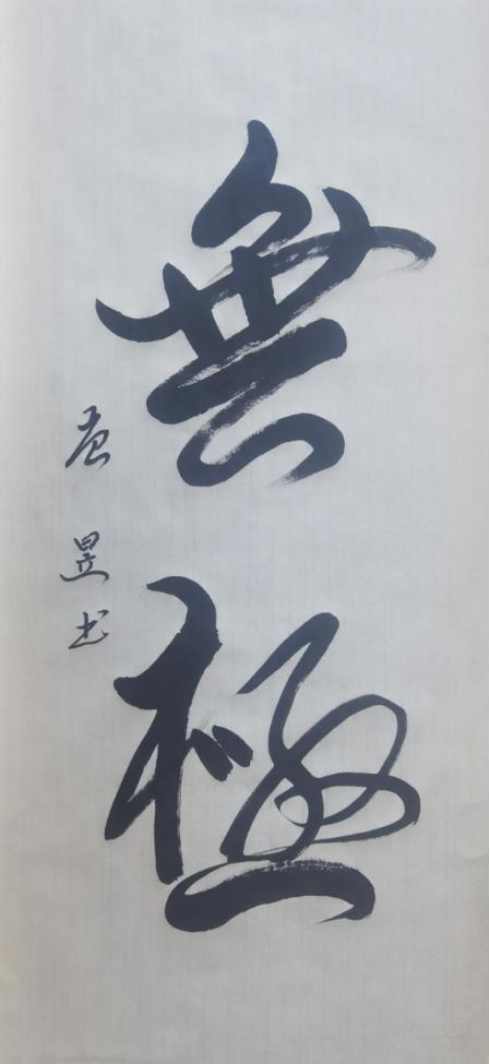 無極
昱书